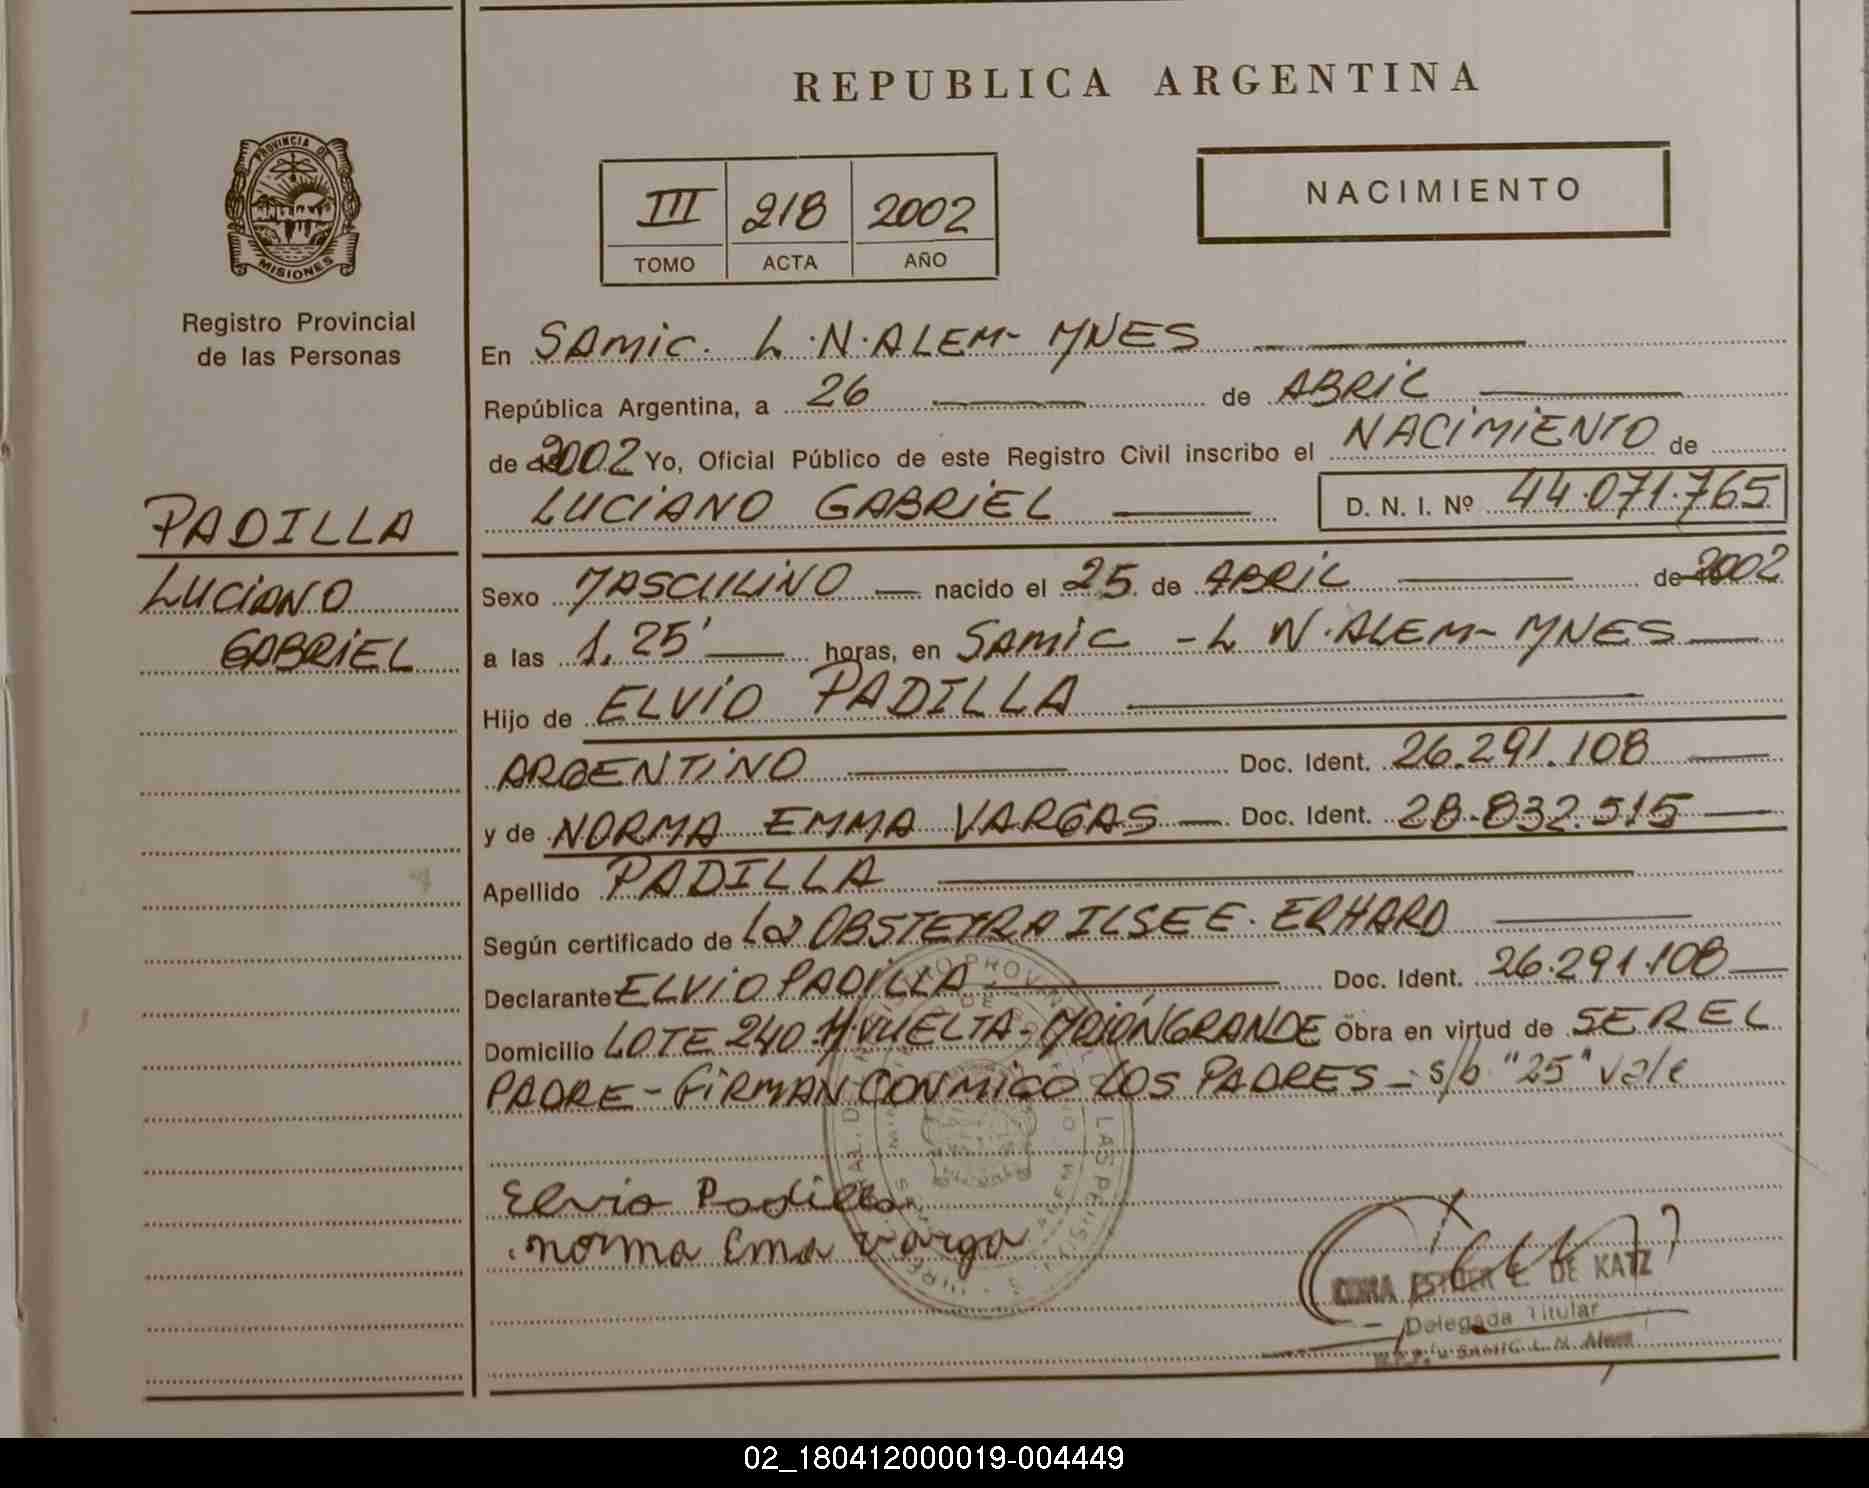 REPUBLICA ARGENTINA
PROVINCIA DE
MISIONES
Registro Provincial
de las Personas
III 218 2002
TOMO ACTA AÑO
NACIMIENTO
PADILLA
LUCIANO
GABRIEL
En SAMIC. L.N.ALEM- MNES
República Argentina, a 26 de ABRIL
de 2002 Yo, Oficial Público de este Registro Civil inscribo el NACIMIENTO de
LUCIANO GABRIEL D. N. I. Nº 44.071.765
Sexo MASCULINO nacido el 25 de ABRIL de 2002
a las 1,25' horas, en SAMIC - L N.ALEM- MNES
Hijo de ELVIO PADILLA
ARGENTINO Doc. Ident. 26.291.108
y de NORMA EMMA VARGAS Doc. Ident. 28.832.515
Apellido PADILLA
Según certificado de La OBSTETRA ILSE E. ERHARD
Declarante ELVIO PADILLA Doc. Ident. 26.291.108
Domicilio LOTE 240 VUELTA- MOJÓN GRANDE Obra en virtud de SER EL
PADRE - FIRMAN CONMIGO LOS PADRES - s/b "25" vale
Elvio Padilla
norma Ema varga
ESTHER E. DE KATZ
Delegada Titular
SAMIC L. N. Alem
02_180412000019-004449